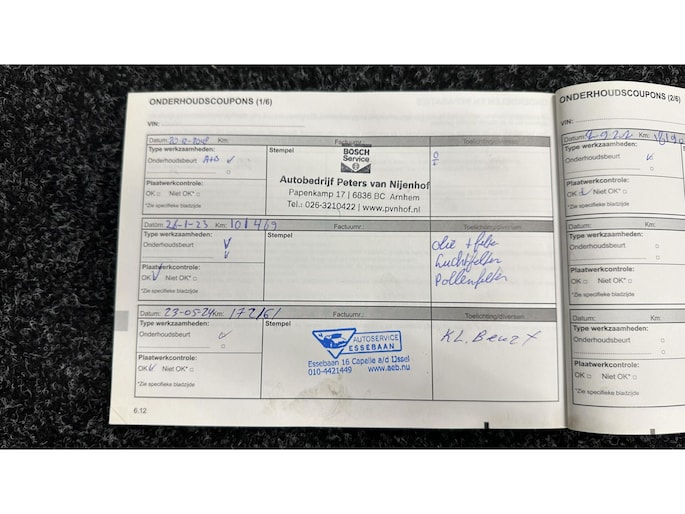 ONDERHOUDSCOUPONS (1/6)
VIN:
Datum: Km: Factuurnr.: Toelichting/diversen
Type werkzaamheden:
Onderhoudsbeurt A+B
Plaatwerkcontrole:
OK □ Niet OK* □
*Zie specifieke bladzijde
Stempel
BOSCH
Service
Autobedrijf Peters van Nijenhof
Papenkamp 17 | 6836 BC Arnhem
Tel.: 026-3210422 | www.pvnhof.nl
Datum: 26-1-23 Km: Factuurnr.: Toelichting/diversen
Type werkzaamheden:
Onderhoudsbeurt
Plaatwerkcontrole:
OK Niet OK* □
*Zie specifieke bladzijde
Stempel
olie + filter
Luchtfilter
Pollenfilter
Datum: 23-05-24 Km: Factuurnr.: Toelichting/diversen
Type werkzaamheden:
Onderhoudsbeurt
Plaatwerkcontrole:
OK Niet OK* □
*Zie specifieke bladzijde
Stempel
AUTOSERVICE
ESSEBAAN
Essebaan 16 Capelle a/d IJssel
010-4421449 www.aeb.nu
KL. Beurt
6.12
ONDERHOUDSCOUPONS (2/6)
VIN:
Datum: Km:
Type werkzaamheden:
Onderhoudsbeurt
Plaatwerkcontrole:
OK Niet OK* □
*Zie specifieke bladzijde
Datum: Km:
Type werkzaamheden:
Onderhoudsbeurt □
Plaatwerkcontrole:
OK □ Niet OK* □
*Zie specifieke bladzijde
Datum: Km:
Type werkzaamheden:
Onderhoudsbeurt □
Plaatwerkcontrole:
OK □ Niet OK* □
*Zie specifieke bladzijde